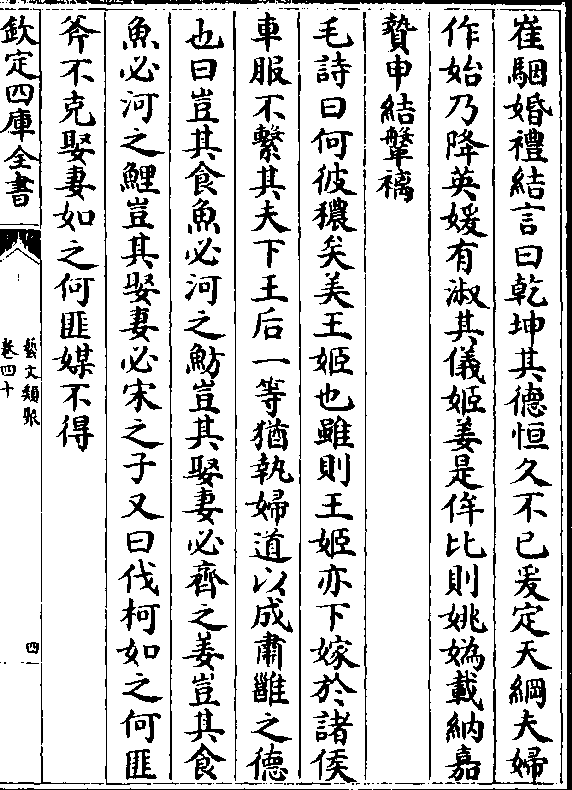 崔駰婚禮結言曰乾坤其德恒久不已爰定天綱夫婦
作始乃降英媛有淑其儀姬姜是侔比則姚媯載納嘉
贄申結鞶褵
毛詩曰何彼穠矣美王姬也雖則王姬亦下嫁於諸侯
車服不繫其夫下王后一等猶執婦道以成肅雝之德
也曰豈其食魚必河之魴豈其娶妻必齊之姜豈其食
魚必河之鯉豈其娶妻必宋之子又曰伐柯如之何匪
斧不克娶妻如之何匪媒不得
欽定四庫全書
藝文類聚
卷四十
四